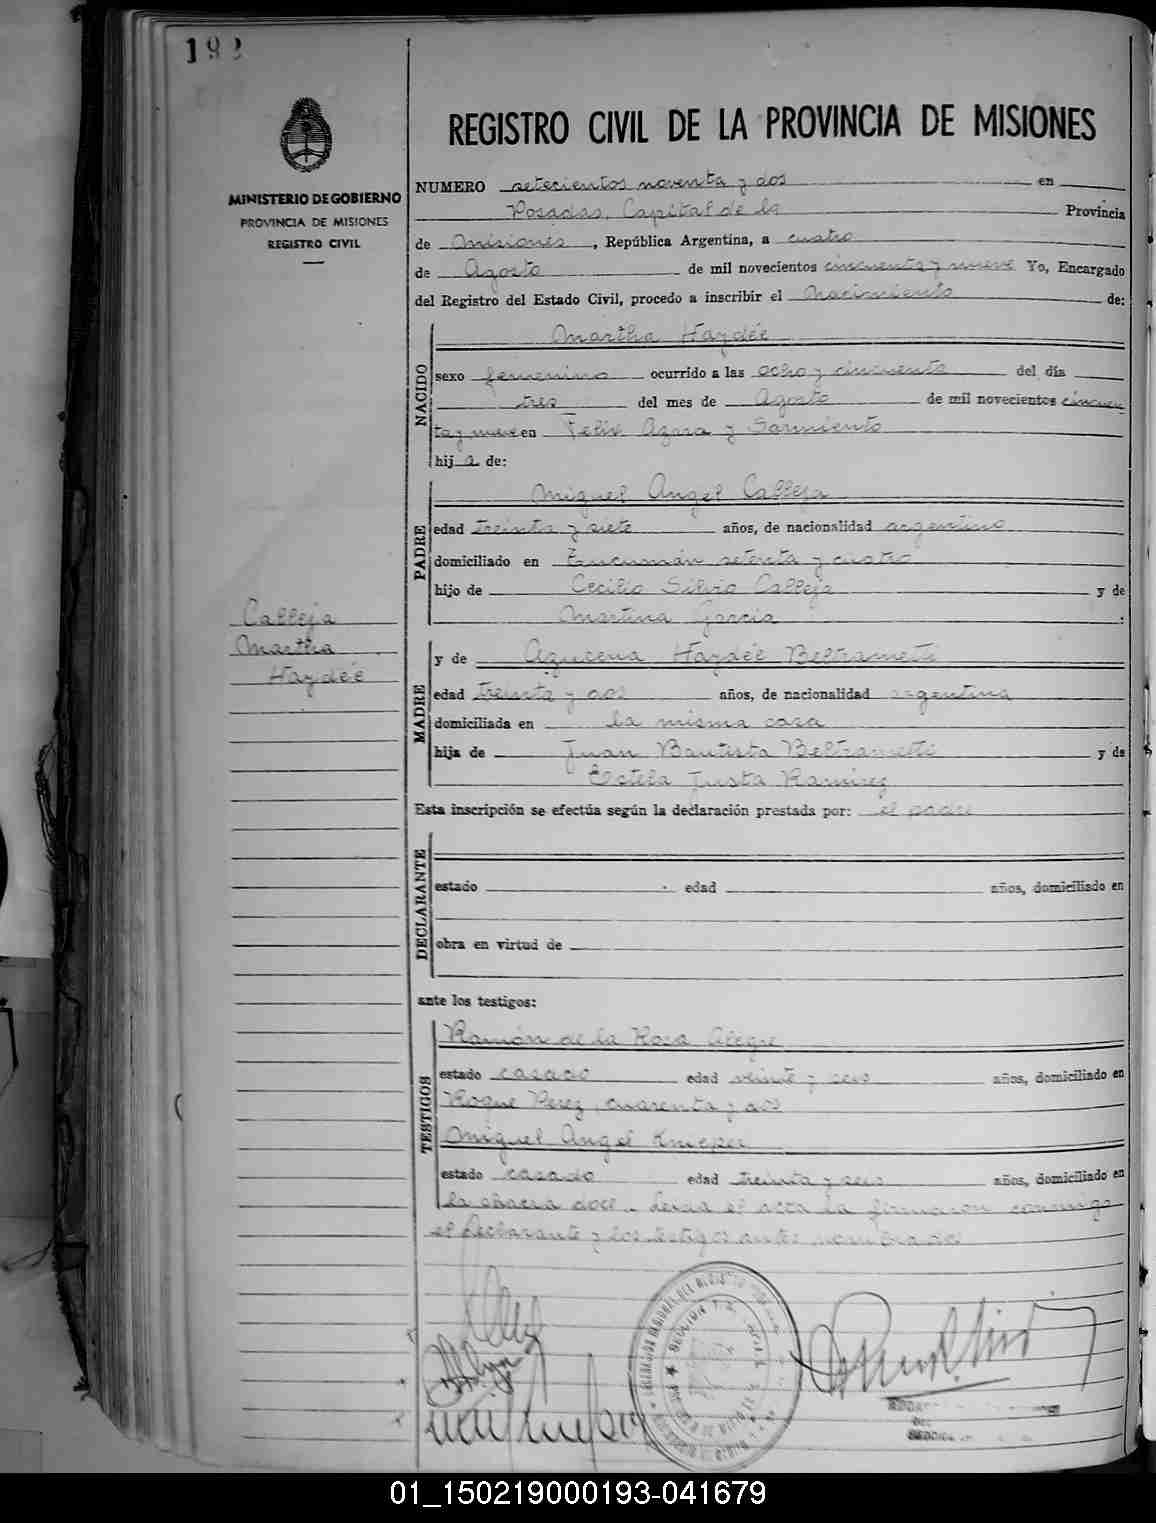 192
MINISTERIO DE GOBIERNO
PROVINCIA DE MISIONES
REGISTRO CIVIL
REGISTRO CIVIL DE LA PROVINCIA DE MISIONES
NUMERO setecientos noventa y dos en
Posadas, Capital de la Provincia
de Misiones, República Argentina, a cuatro
de Agosto de mil novecientos cincuenta y nueve Yo, Encargado
del Registro del Estado Civil, procedo a inscribir el Nacimiento de:
NACIDO
Martha Haydée
sexo femenino ocurrido a las ocho y cincuenta del día
tres del mes de Agosto de mil novecientos cincuen
ta y nueve en Felix Azara y Sarmiento
hija de:
PADRE
Miguel Angel Calleja
edad treinta y siete años, de nacionalidad argentino
domiciliado en Tucumán setenta y cuatro
hijo de Cecilio Silvio Calleja y de
Martina Garcia.
Calleja
Martha
Haydée
MADRE
y de Azucena Haydée Beltrametti
edad treinta y dos años, de nacionalidad argentina
domiciliada en la misma casa
hija de Juan Bautista Beltrametti y de
Estela Justa Ramirez
Esta inscripción se efectúa según la declaración prestada por: el padre
DECLARANTE
estado edad años, domiciliado en
obra en virtud de
ante los testigos:
TESTIGOS
Ramón de la Rosa Alegre
estado casado edad veinte y seis años, domiciliado en
Roque Perez, cuarenta y dos
Miguel Angel Knieper
estado casado edad treinta y seis años, domiciliado en
la chacra doce. Leida el acta la firmaron conmigo
el Declarante y los testigos antes nombrados
SECCION
DEL
SECCION
01_150219000193-041679